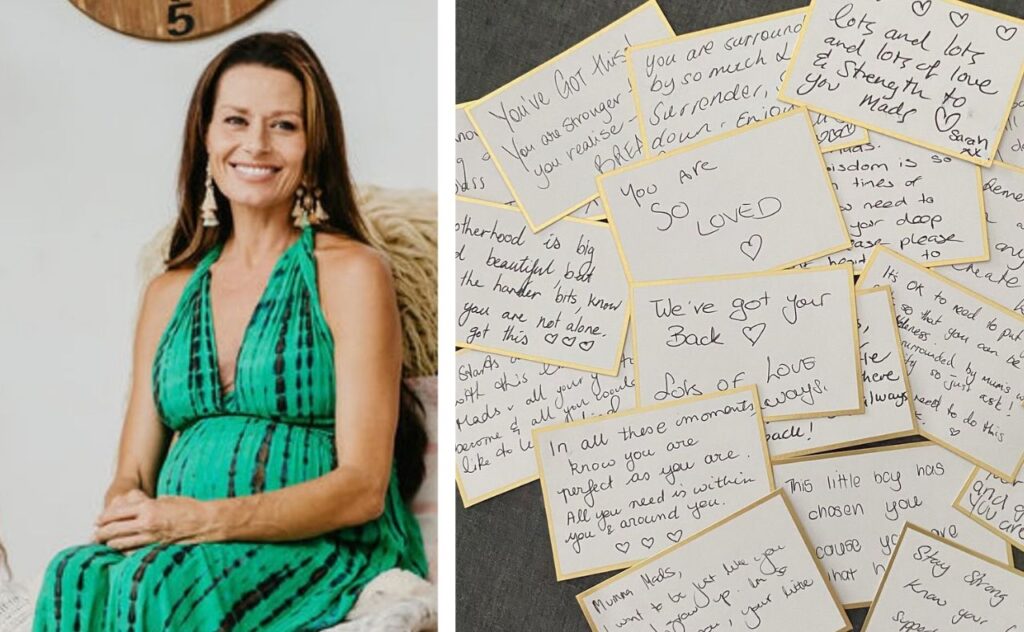 5
You've GOT this!
You are stronger
you realise -
BREA
you are surroun
by so much L
Surrender,
down. Enjoy
lots and lots
and lots of love
& Strength to
you
Mads
Sarah
xx
You Are
SO
LOVED
Mads.
isdom is so
n times of
need to
your deep
please to
otherhood is big
beautiful, but
the harder bits, know
you are not alone.
got this
We've got your
Back
Lots OF LOVE
always.
here
Always
back!
It's OK to need to put
so that you can be
surrounded by mum's
so just ask!
need to do this
with this
Mads - all your
become & all you would
like to
In all these moments
know you are
perfect as you are.
All you need is within
you & around you.
This little boy has
chosen you
cause you are
Mumma Mads,
I want to be just like you
I grow up. in so
, your little
and
you are
Stay Strong
Know your